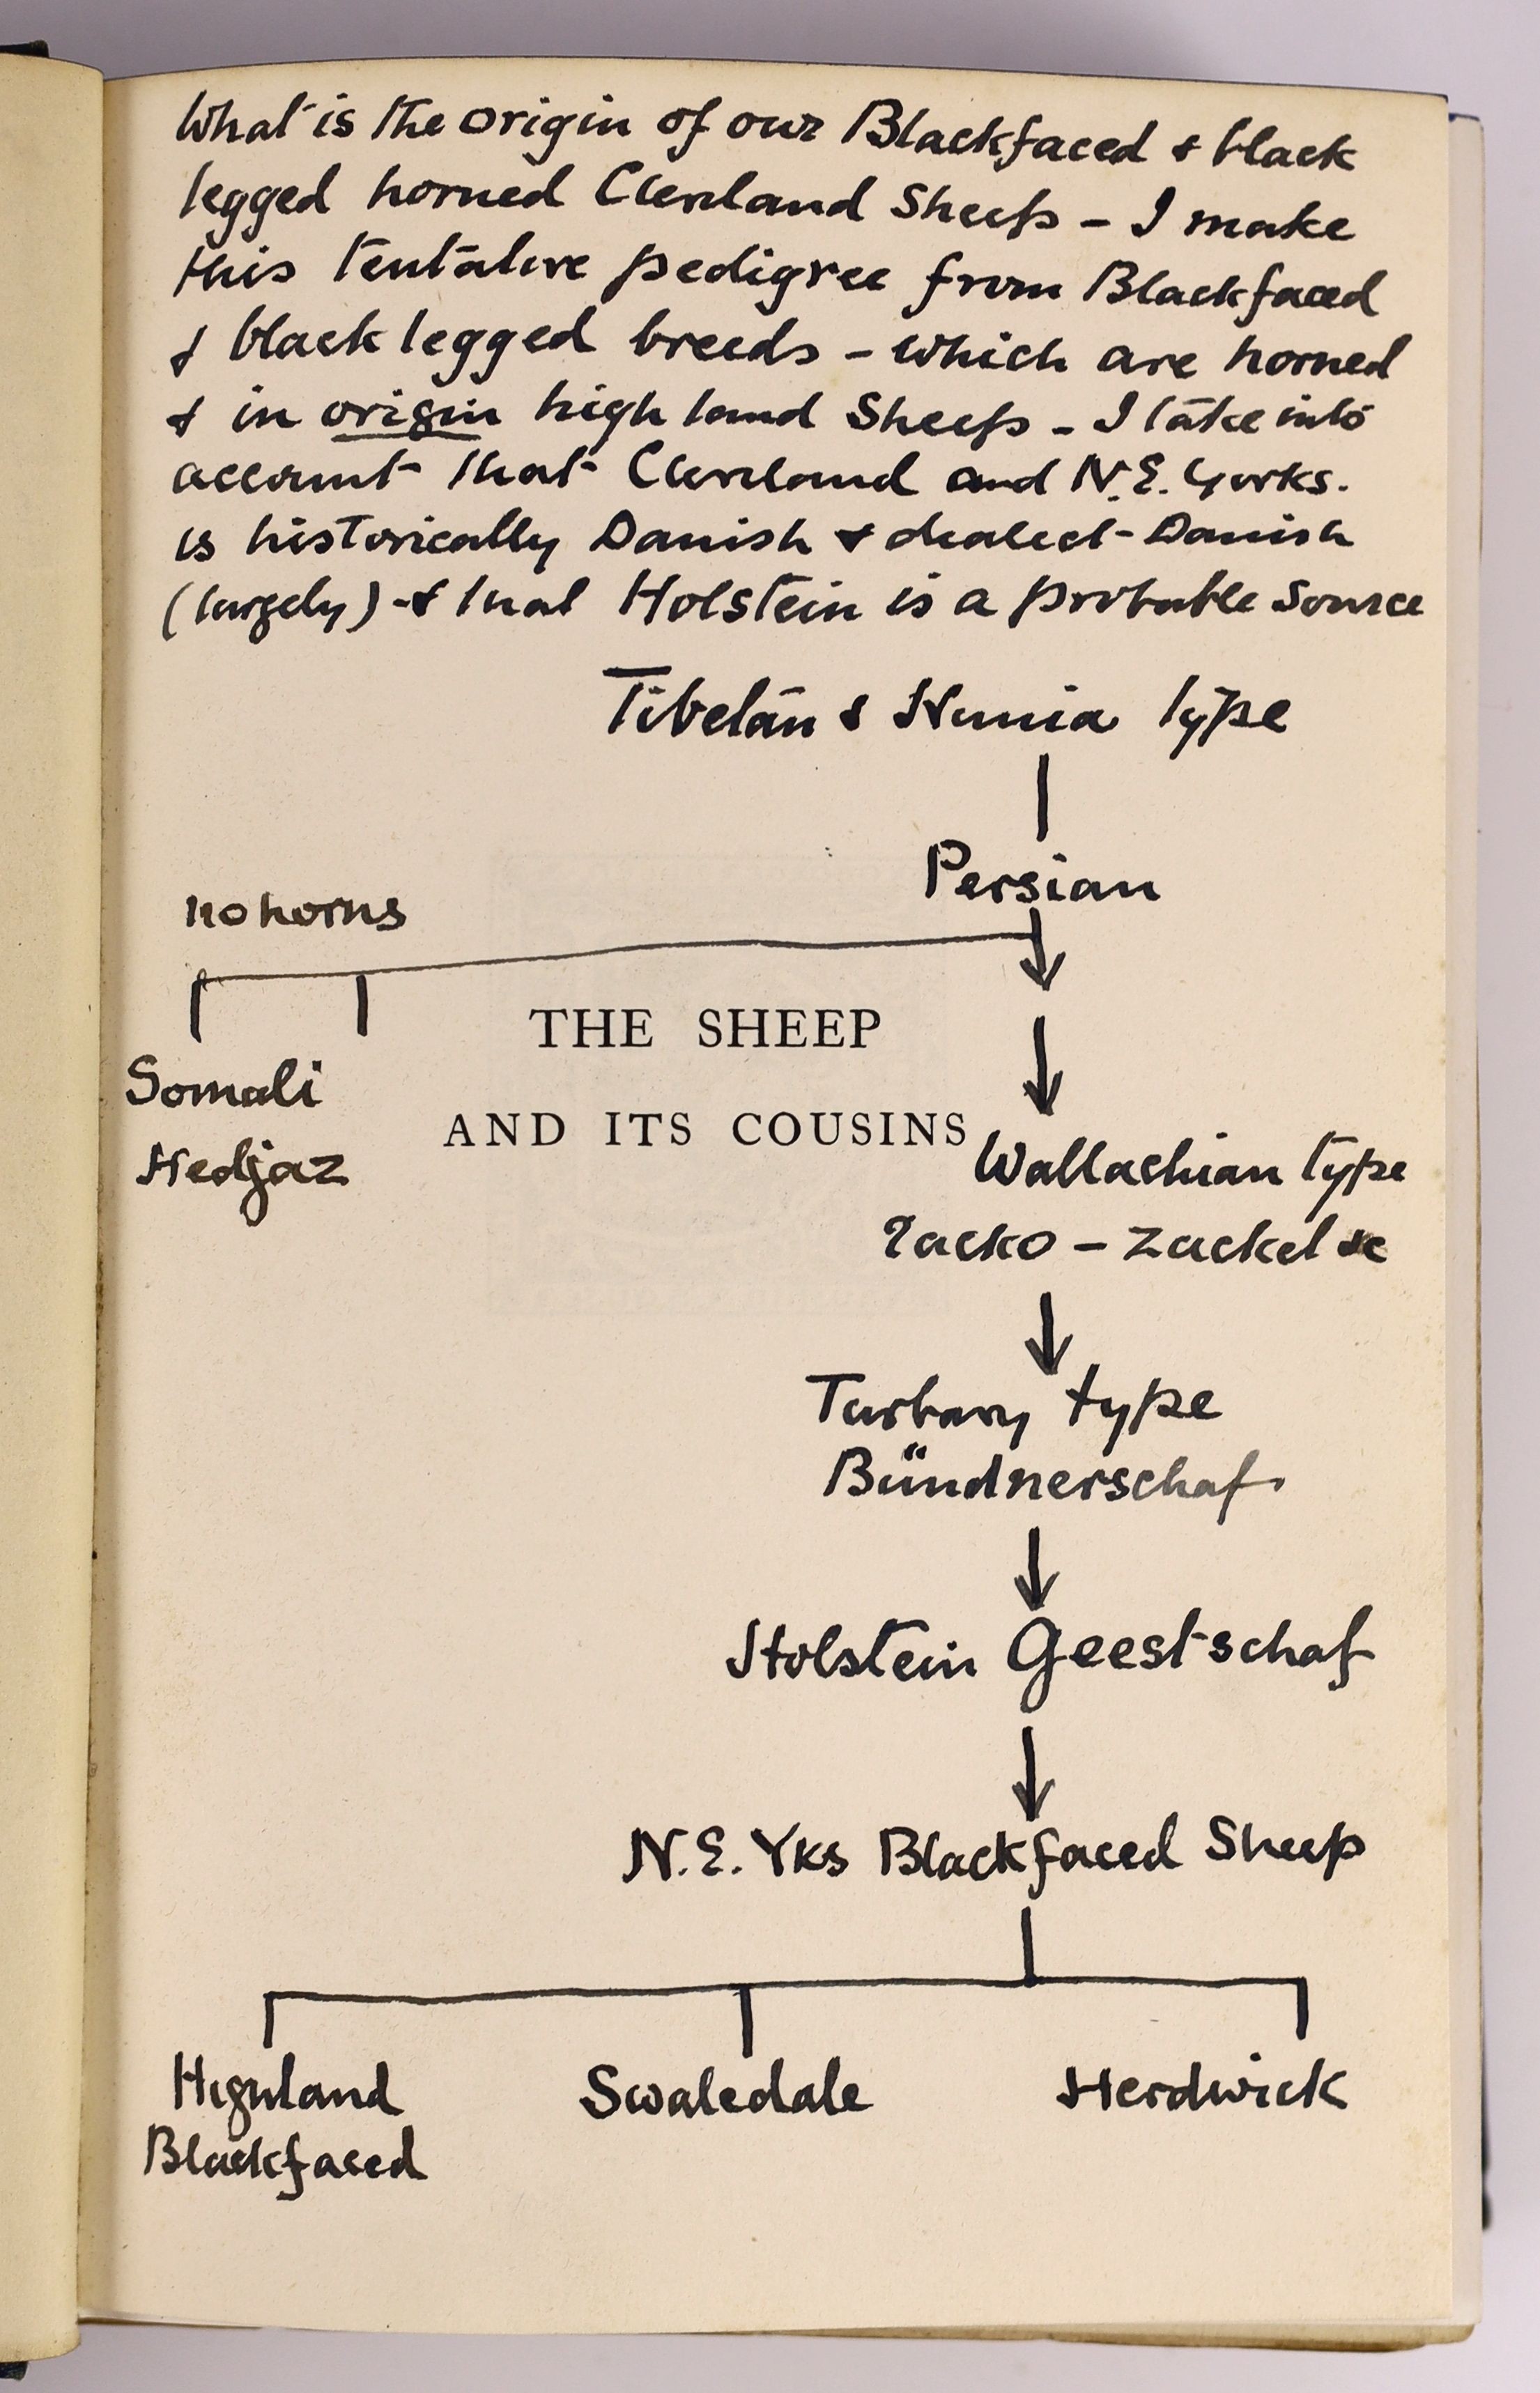 What is the origin of our Blackfaced & black
legged horned Cleveland Sheep – I make
this tentative pedigree from Blackfaced
& black legged breeds – which are horned
& in origin high land Sheep – I take into
account that Cleveland and N.E. Yorks.
is historically Danish & dialect - Danish
(largely) - & that Holstein is a probable source
Tibetan & Hunia type
Persian
no horns
THE SHEEP
Somali
AND ITS COUSINS
Hedjaz
Wallachian type
Racko – Zackel &c
Turbary type
Bündnerschaf
Holstein Geestschaf
N.E. Yks Blackfaced Sheep
Highland
Blackfaced
Swaledale
Herdwick